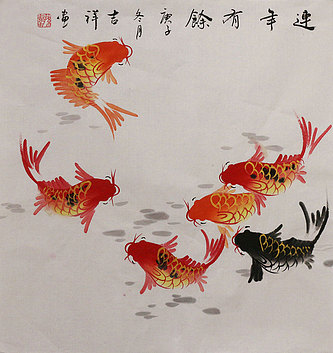 連年有餘
庚子
冬月
吉祥畫